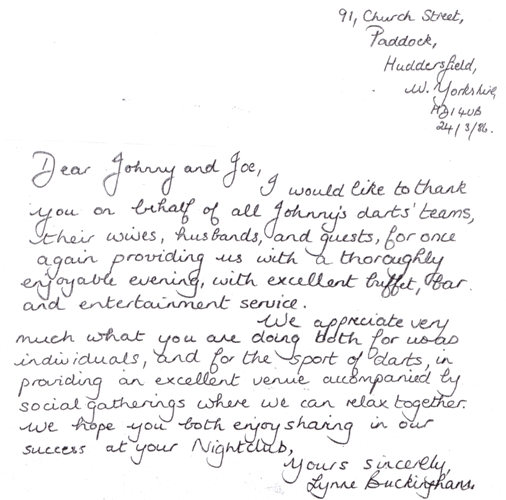 91, Church Street,
Paddock,
Huddersfield,
W. Yorkshire,
HD1 4UB
24/3/86.
Dear Johnny and Joe,
I would like to thank
you on behalf of all Johnny's darts' teams,
their wives, husbands, and guests, for once
again providing us with a thoroughly
enjoyable evening, with excellent buffet, bar
and entertainment service.
We appreciate very
much what you are doing both for us as
individuals, and for the sport of darts, in
providing an excellent venue accompanied by
social gatherings where we can relax together.
We hope you both enjoy sharing in our
success at your Nightclub,
Yours sincerely,
Lynne Buckingham